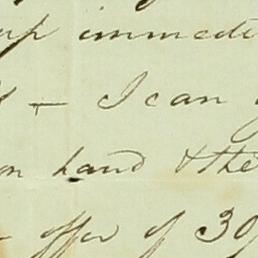 up immedi
- I can
on hand & the
offer of 30